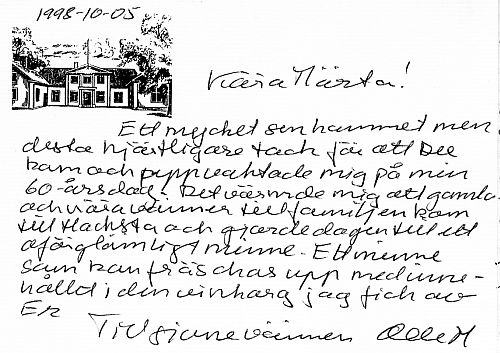 1998-10-05
Kära Märta!
Ett mycket senkommet men
desto hjärtligare tack för att Du
kom och uppvaktade mig på min
60-årsdag! Det värmde mig att gamla
och nära vänner till familjen kom
till Hacksta och gjorde dagen till ett
oförglömligt minne. Ett minne
som kan fräschas upp med inne-
hållet i din vinkorg jag fick av
Er
Tillgivne vännen Olle M